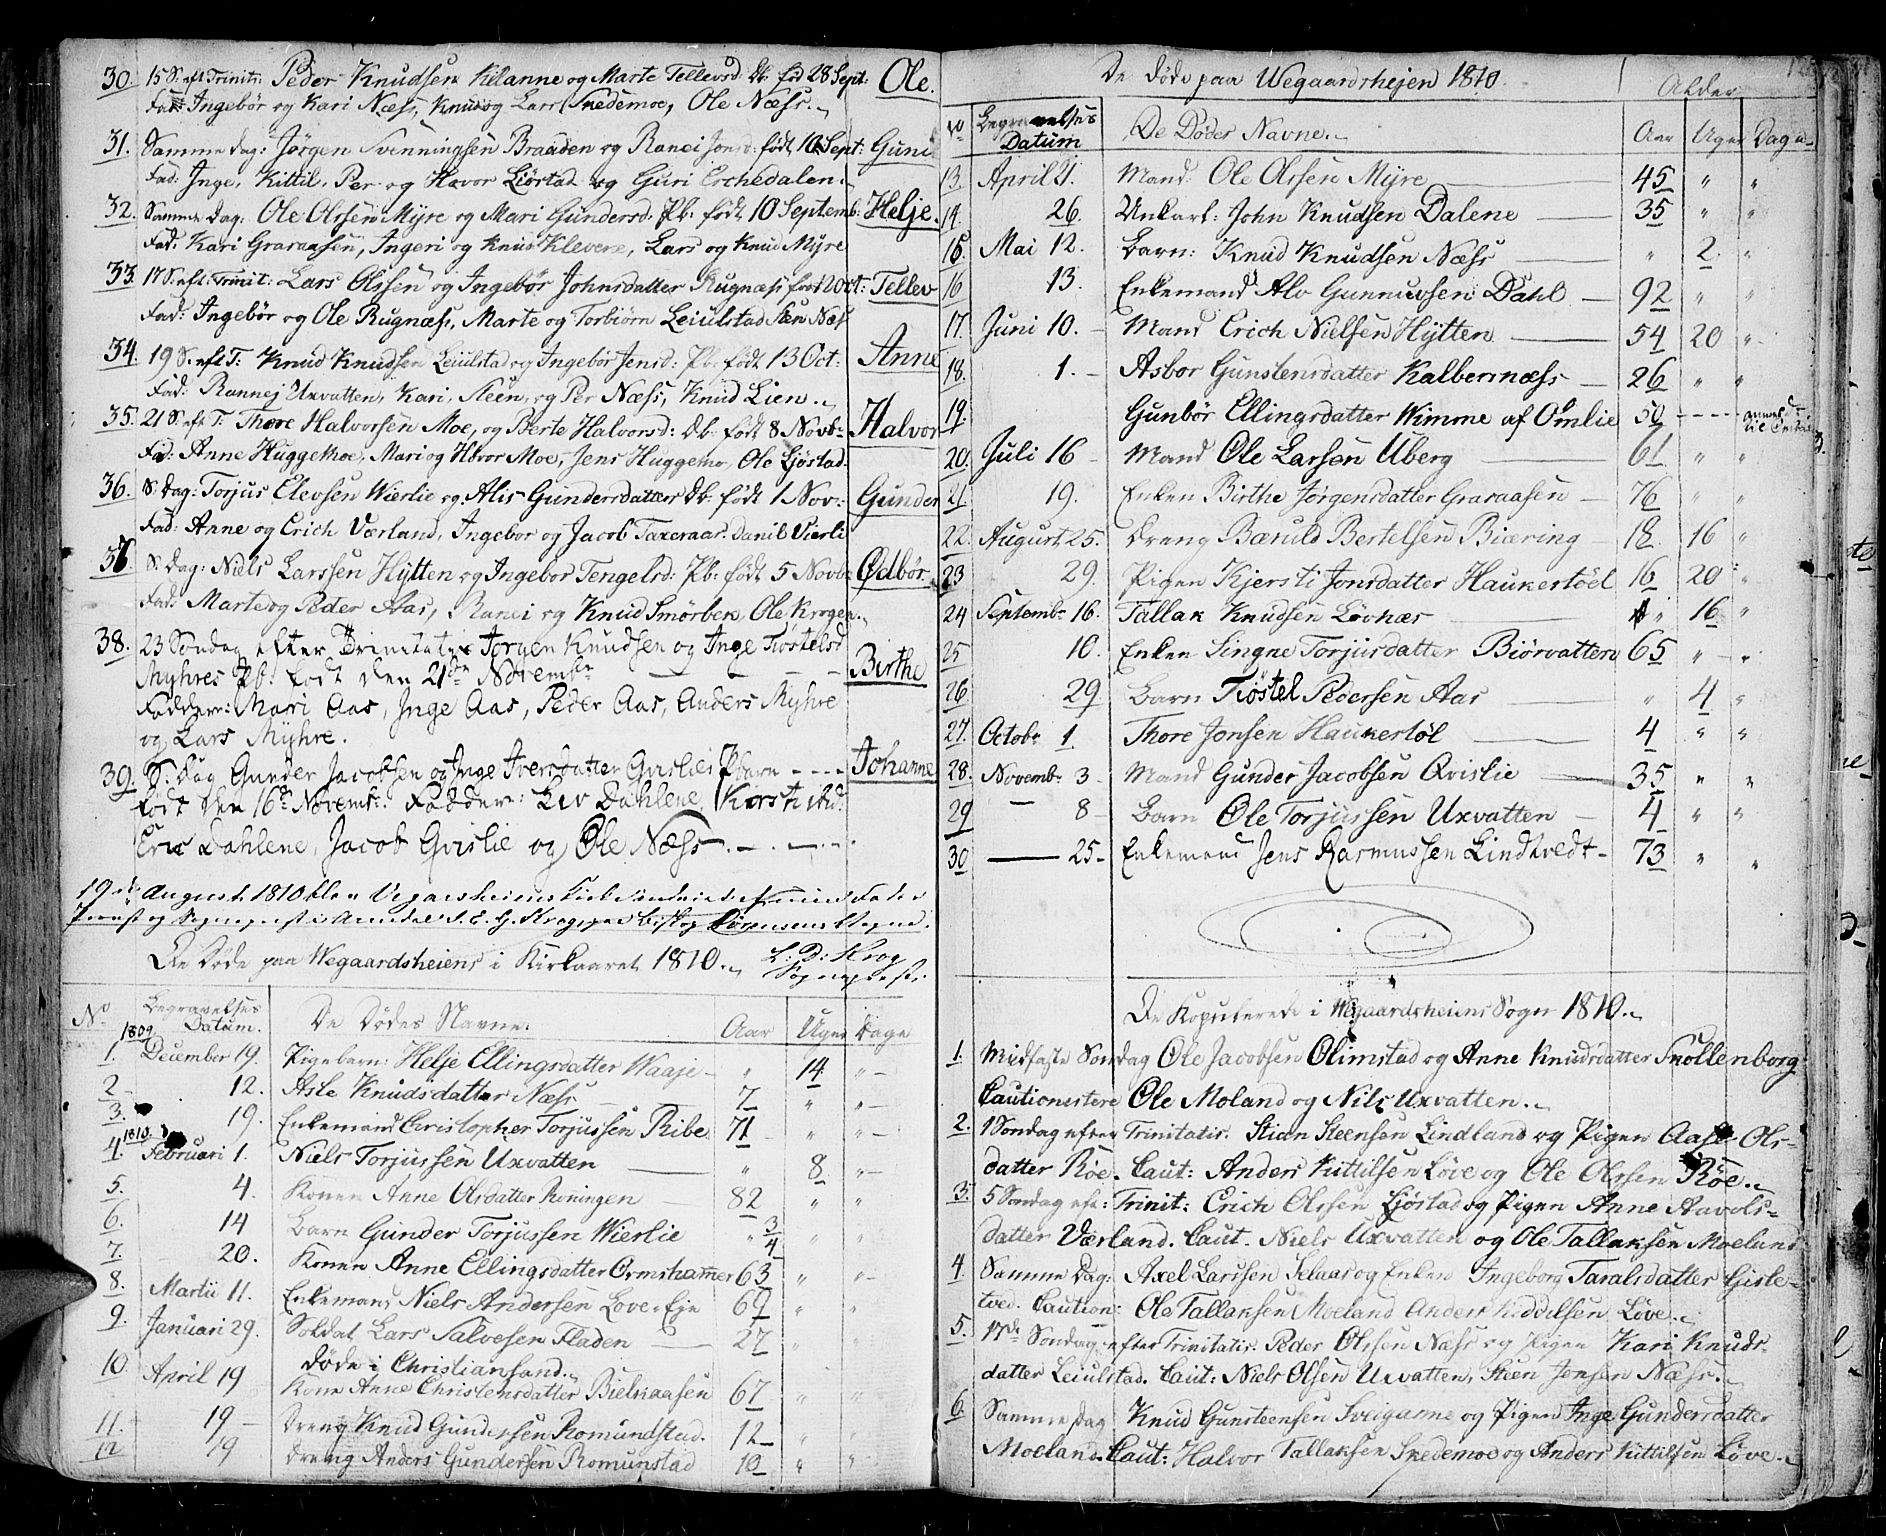 30. 15 S: eft Trinit: Peder Knudsen Kilanne og Marte Tellevsd: Db: fød 28 Sept: Ole.
Fad: Ingebør og Kari Næss, Knud og Lars Skedemoe, Ole Næss.
31. Samme dag: Jørgen Svenningsen Braaden og Ranei Jonsd: født 10 Sept: Guni
Fad: Inge, Kittil, Per og Havor Liøstad og Guri Erchedalen.
32. Samme dag: Ole Olssen Myre og Mari Gundersd: Pb: født 10 Septemb: Helje.
Fad: Kari Graraasen, Ingeri og Knud Klevene, Lars og Knud Myre
33. 17 S: eft: Trinit: Lars Olssen og Ingebør Johnsdatter Rugnæss født 12 Oct: Tellev
Fad: Ingebør og Ole Rugnæss, Marte og Torbiørn Leiulstad Sten Næs
34. 19 S. eft T: Knud Knudsen Leiulstad og Ingebør Jensd: Pb: født 13 Oct: Anne
Fad: Rannej Uxvatten, Kari, Steen, og Per Næss, Knud Lien.
35. 21 S. eft T: Thore Halvorsen Moe, og Berte Halvorsd: Db. født 8 Novb: Halvor
Fad: Anne Huggemoe, Mari og Havor Moe, Jens Huggemo, Ole Ljøstad.
36. S: dag: Torjus Elevsen Wierlie og Alis Gundersdatter Db: født 1 Nov: Gunder
Fad: Anne og Erich Værland, Ingebor og Jacob Taxeraas. Danil Vierli
37 S: dag: Niels Larssen Hytten og Ingebor Tengelsd: Pb: født 5 Novb: Ødbør
Fad: Marte og Peder Aas, Ranei og Knud Smørben, Ole Krogen.
38. 23 Søndag efter Trinitatis Jørgen Knudsen og Inge Tiøstelsd
Myhres Pb: født den 21de Novembr Birthe
Faddere: Mari Aas, Inge Aas, Peder Aas, Anders Myhre
og Lars Myhre.
39. S: dag Gunder Jacobsen og Inge Iversdatter Gvislies Pbarn Johanne
født den 16de Novemb: Faddere: Liv Dahlene, Kirsti ibid.
Eric Dahlene, Jacob Gvislie og Ole Næss.
19de August 1810 blev Vegarsheiens Kirke indviet af min Fader
Provst og Sognepræst i Arendal S. E. H. Krog paa Biskop Sørensens Vegne.
L: D: Krog
Sognepræst.
De døde paa Wegaardsheiens i Kirkeaaret 1810.
No Begravelses Datum. De Dødes Navne. Aar Uger Dage
1809
1. December 19. Pigebarn: Helje Ellingsdatter Waaje " 14 "
2 12. Asle Knudsdatter Næss 7 " "
3. 19. Enkemand Christopher Torjussen Ribe 71 " "
1810.
4. Februari 1. Niels Torjussen Uxvatten " 8 "
5. 4. Konen Anne Olsdatter Roningen 82 " "
6. 14 Barn Gunder Torjussen Wierlie " 3/4 " "
7. 20. Konen Anne Ellingsdatter Ormshammer 63 " "
8. Martii 11. Enkemand Niels Andersen Løve-Eje 69 " "
9. Januari 29. Soldat Lars Salvesen Fladen 27 "
døde i Christiansand.
10. April 19 Kone Anne Christensdatter Bielsaasen 67 " "
11. 19 Dreng Knud Gundersen Romundstad. 12 "
12 19 Dreng Anders Gundersen Romunstad 10 " "
De døde paa Wegaardshejen 1810.
Alder
No Begravelses Datum De Dødes Navne. Aar Uger Dage
13. April 21. Mand Ole Olssen Myre 45 " "
14. 26. Unkarl: John Knudsen Dalene 35 " "
15. Mai 12. Barn: Knud Knudsen Næss " 2 "
16 13. Enkemand Alv Gunnuvsen Dahl 92 " "
17. Juni 10. Mand Erich Nielsen Hytten 54 20 "
18. 1. Asbor Gunstensdatter Kalbernæss 26 " "
19. Gunbør Ellingsdatter Wimme af Omlie 50
20. Juli 16 Mand Ole Larsen Uberg 61 " "
21. 19. Enken Birthe Jørgensdatter Graraasen 76 " "
22. August 25. Dreng Bæruld Bertelsen Biæring 18 16 "
23 29. Pigen Kjersti Jonsdatter Haukertöel 16 20 "
24 Septembr 16. Tallak Knudsen Løvnæs " 16 "
25 10. Enken Singne Torjusdatter Biørvatten 65 " "
26 29 Barn Tiøstel Pedersen Aas " 4 "
27. Octobr 1. Thore Jonsen Haukertöl 4 " "
28. Novembr 3 Mand Gunder Jacobsen Qvislie 35 " "
29 8 Barn Ole Torjussen Uxvatten 4 " "
30 25 Enkemand Jens Rasmussen Lindtvedt 73 " "
De Kopulerede i Wegaardsheiens Sogn 1810.
1. Midfaste Søndag Ole Jacobsen Olimstad og Anne Knudsdatter Snollenborg
Cautionistere Ole Moland og Nils Uxvatten.
2. 1 Søndag efter Trinitatis. Stian Steensen Lindland og Pigen Aase Ols-
datter Røe. Caut: Anders Kittilsen Løve og Ole Olssen Røe.
3. 5 Søndag eft: Trinit: Erich Olssen Ljøstad og Pigen Anne Aavols-
datter Værland. Caut. Niels Uxvatten og Ole Tallaksen Moeland
4. Samme Dag: Axel Larssen Selaas og Enken Ingeborg Taralsdatter Giste-
tved. Caution: Ole Tallaksen Moeland Anders Kittilsen Løve.
5. 17de Søndag efter Trinitatis. Peder Olssen Næss og Pigen Kari Knuds-
datter Leiulstad. Caut: Niels Olsen Uxvatten, Steen Jensen Næss.
6 Samme dag Knud Gunsteensen Sveiganne og Pigen Inge Gundersdatter
Moeland. Caut: Halvor Tallaksen Skedemoe og Anders Kittilsen Løve.